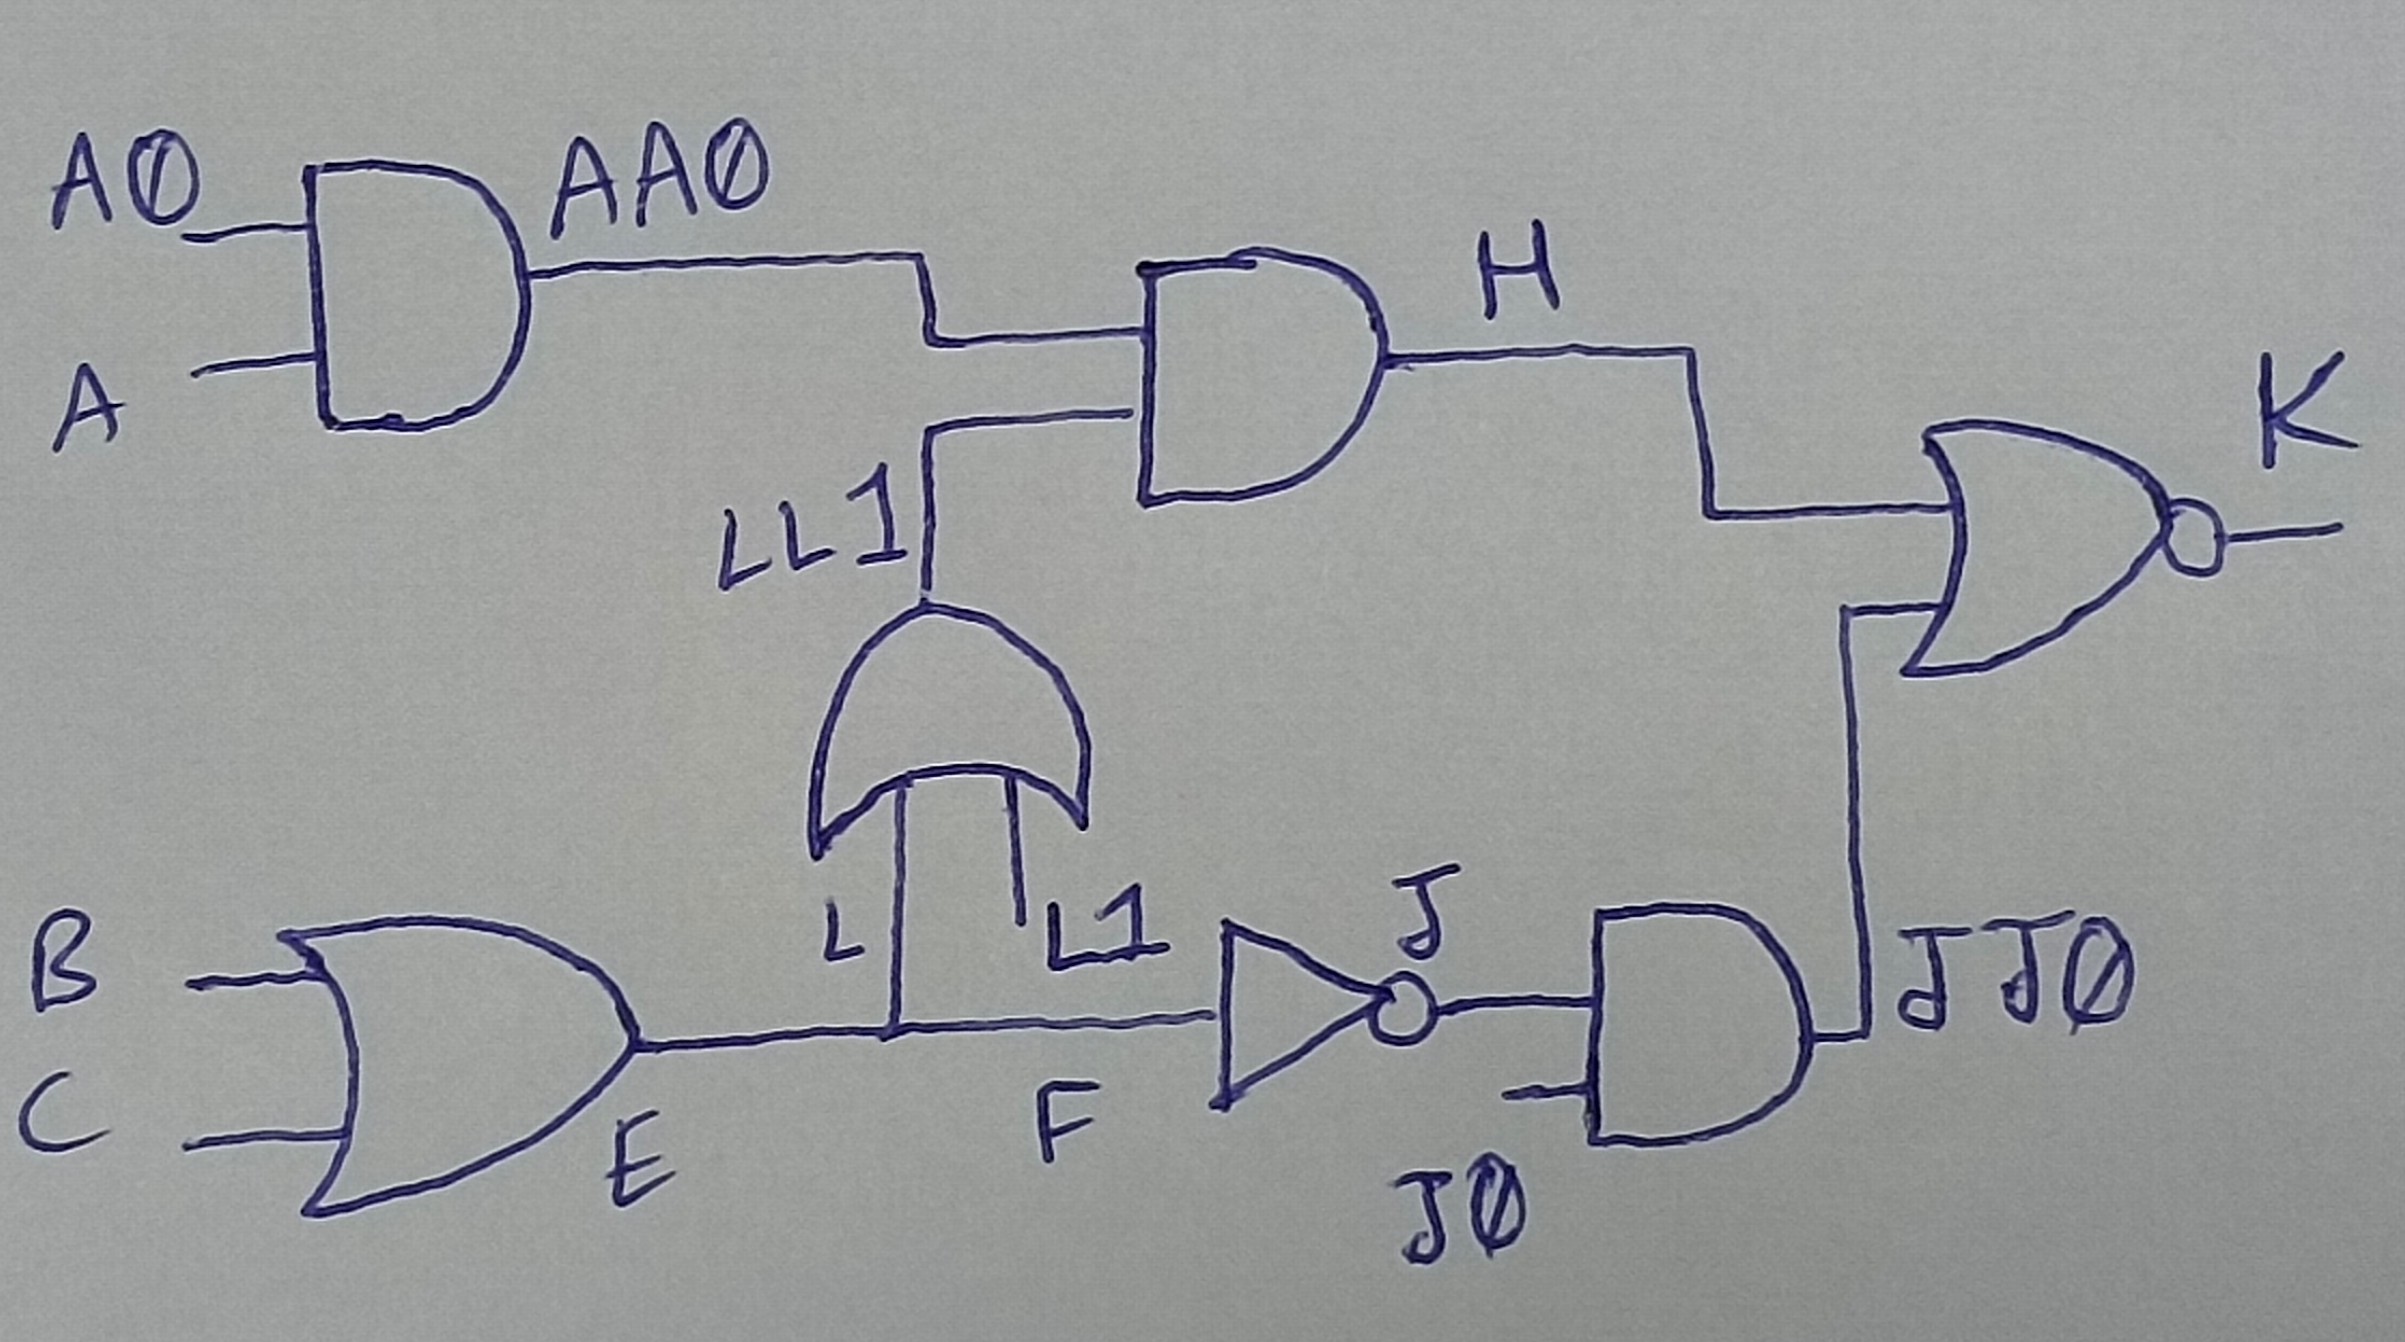 A0
AA0
A
H
K
LL1
L
L1
B
C
E
F
J
J0
JJ0